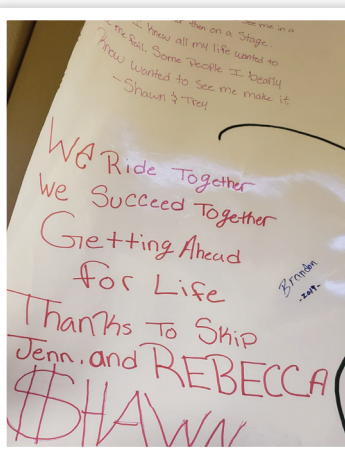 see me in a
then on a Stage.
I Knew all my life wanted to
me fail. Some People I bearly
Know wanted to see me make it
- Shawn & Trey
We Ride Together
We Succeed Together
Getting Ahead
for Life
Thanks To Skip
Jenn. and REBECCA
$HAWN
Brandon
-2019-